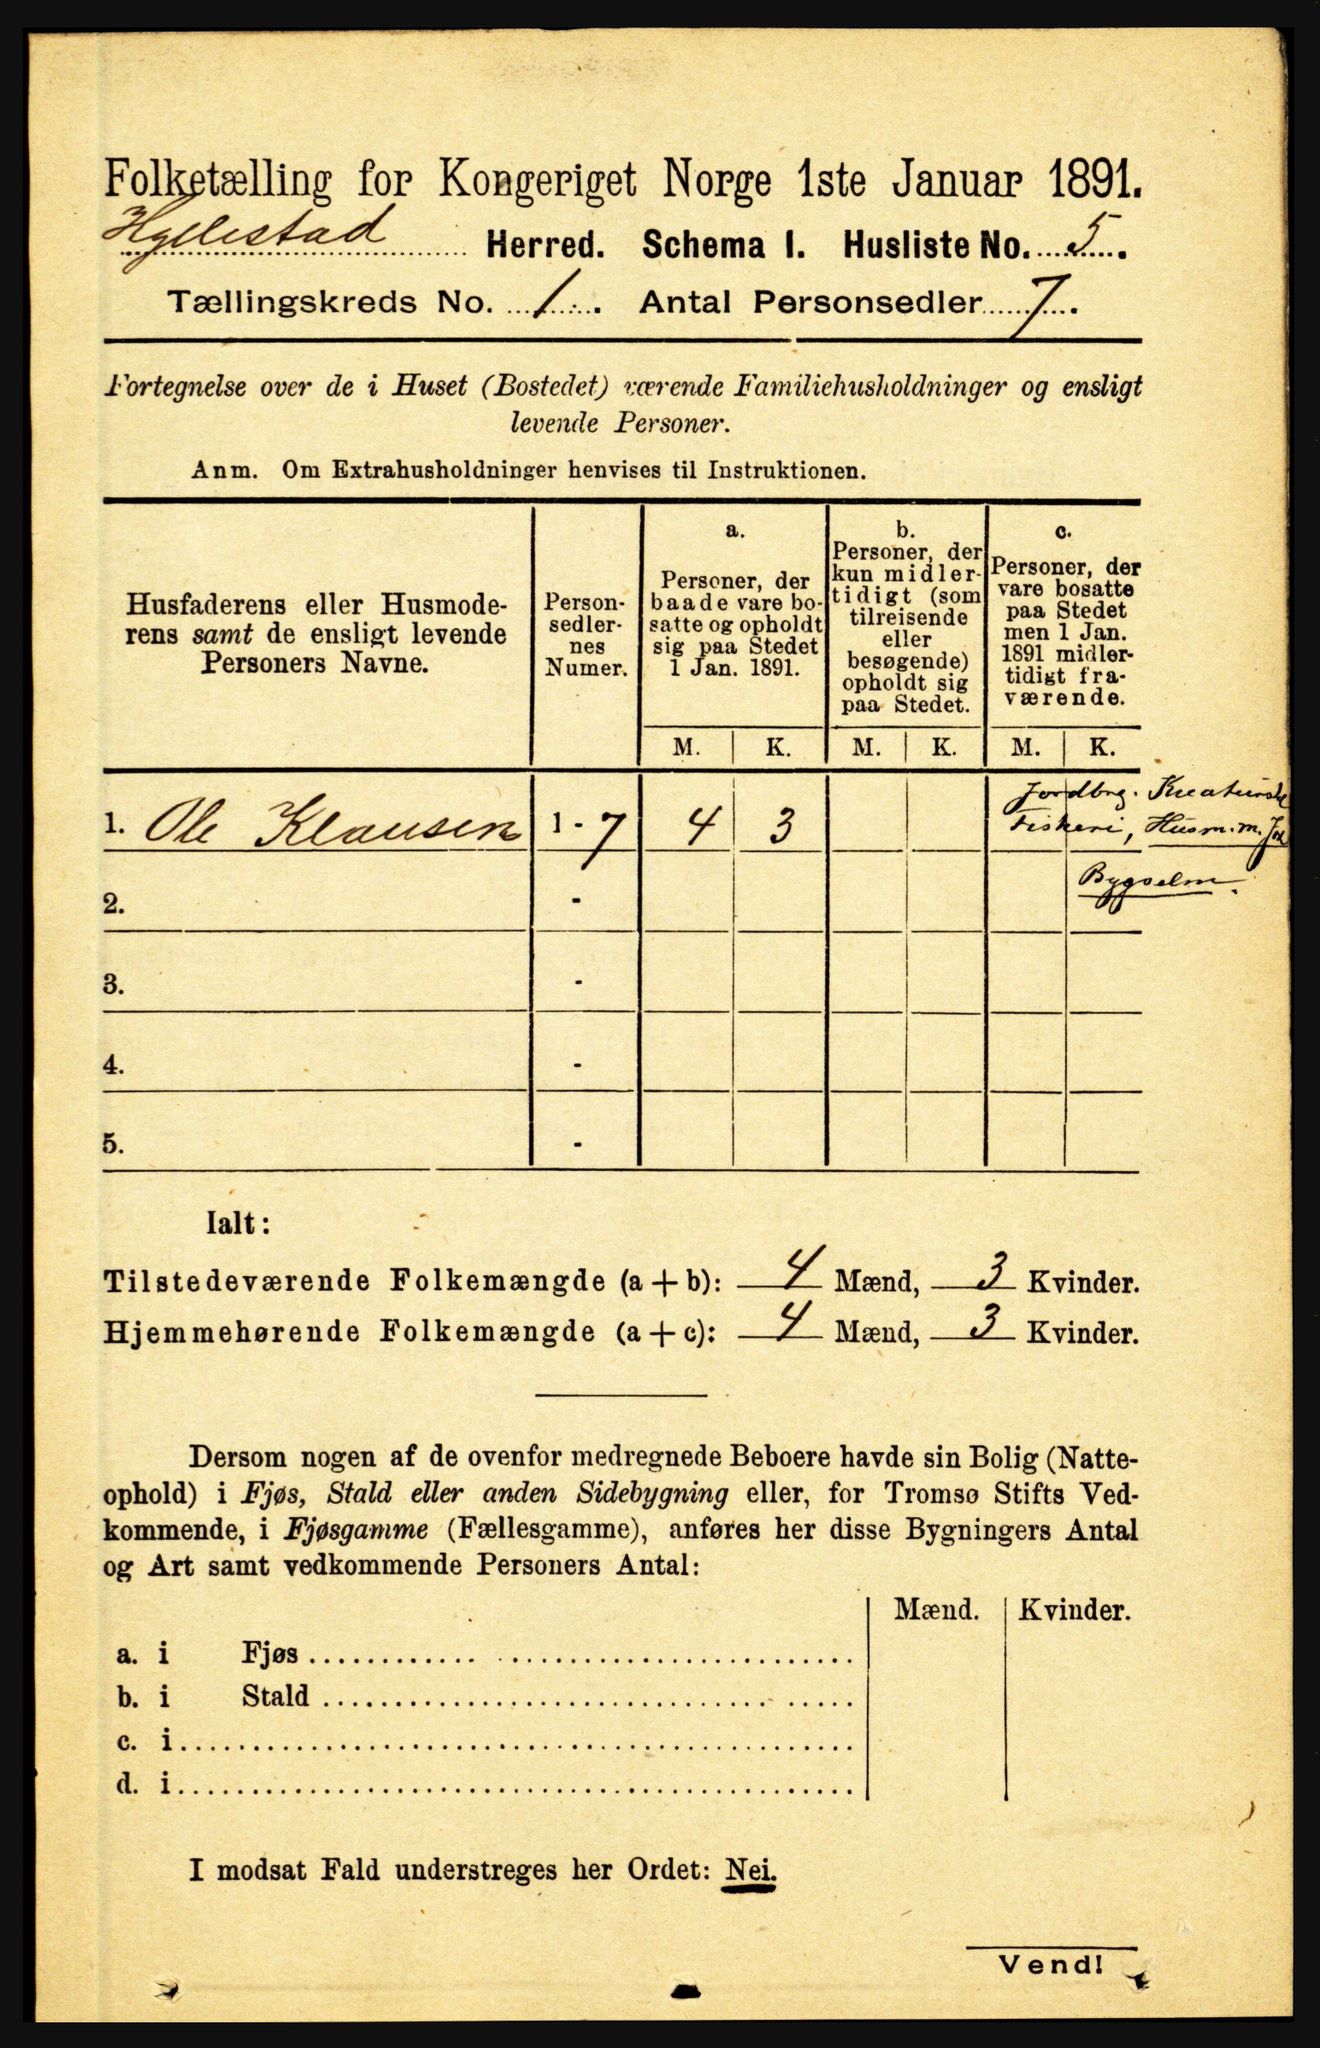 Folketælling for Kongeriget Norge 1ste Januar 1891.
Hyllestad Herred. Schema I. Husliste No. 5.
Tællingskreds No. 1. Antal Personsedler 7.
Fortegnelse over de i Huset (Bostedet) værende Familiehusholdninger og ensligt
levende Personer.
Anm. Om Extrahusholdninger henvises til Instruktionen.
Husfaderens eller Husmode-
rens samt de ensligt levende
Personers Navne.
Person-
sedler-
nes
Numer.
a.
Personer, der
baade vare bo-
satte og opholdt
sig paa Stedet
1 Jan. 1891.
b.
Personer, der
kun midler-
tidigt (som
tilreisende
eller
besøgende)
opholdt sig
paa Stedet.
c.
Personer, der
vare bosatte
paa Stedet
men 1 Jan.
1891 midler-
tidigt fra-
værende.
M. K. M. K. M. K.
Jordbrg. Kreaturshl
1. Ole Klausen 1 - 7 4 3 Fiskeri, Husm. m. Jod
Bygselm.
2. -
3. -
4. -
5. -
Ialt:
Tilstedeværende Folkemængde (a + b): 4 Mænd, 3 Kvinder.
Hjemmehørende Folkemængde (a + c): 4 Mænd, 3 Kvinder.
Dersom nogen af de ovenfor medregnede Beboere havde sin Bolig (Natte-
ophold) i Fjøs, Stald eller anden Sidebygning eller, for Tromsø Stifts Ved-
kommende, i Fjøsgamme (Fællesgamme), anføres her disse Bygningers Antal
og Art samt vedkommende Personers Antal:
Mænd. Kvinder.
a. i Fjøs
b. i Stald
c. i
d. i
I modsat Fald understreges her Ordet: Nei.
Vend!